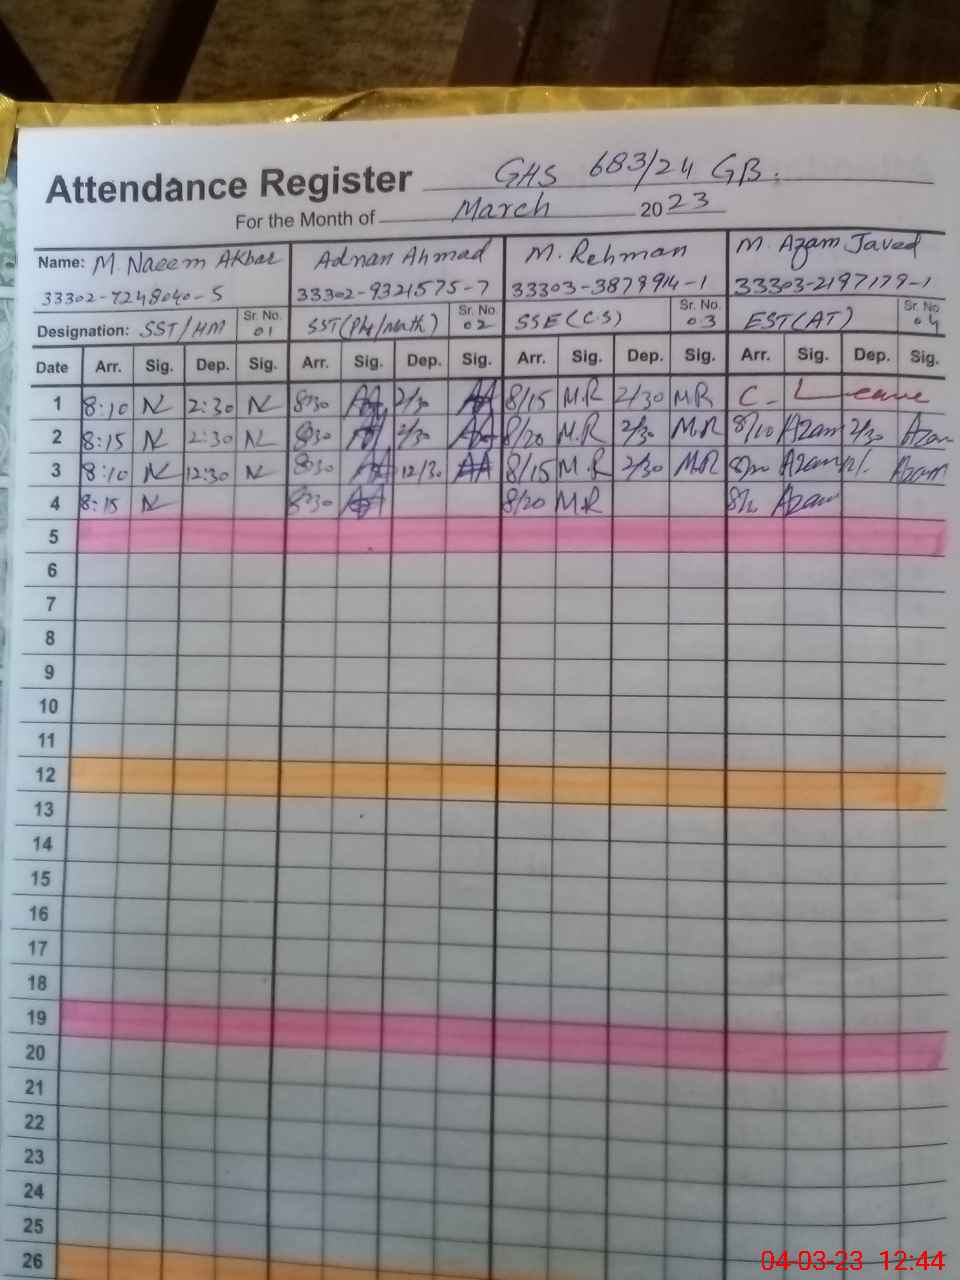 Attendance Register GHS 683/24 GB.
For the Month of March 2023
Name: M. Naeem Akbar Adnan Ahmad M. Rehman M. Azam Javed
33302-7248040-5 33302-9321575-7 33303-3879914-1 33303-2197179-1
Designation: SST/HM Sr. No. 01 SST(Phy/math) Sr. No. 02 SSE(C.S) Sr. No. 03 EST(AT) Sr. No. 04
Date Arr. Sig. Dep. Sig. Arr. Sig. Dep. Sig. Arr. Sig. Dep. Sig. Arr. Sig. Dep. Sig.
1 8:10 N 2:30 N 8/30 AA 2/30 AA 8/15 M.R 2/30 M.R C. Leave
2 8:15 N 2:30 N 8/30 AA 2/30 AA 8/20 M.R 2/30 M.R 8/10 Azam 2/30 Azam
3 8:10 N 12:30 N 8/30 AA 12/30 AA 8/15 M.R 2/30 M.R Azam Azam
4 8:15 N 8/30 AA 8/20 M.R Azam
5
6
7
8
9
10
11
12
13
14
15
16
17
18
19
20
21
22
23
24
25
26
04-03-23 12:44